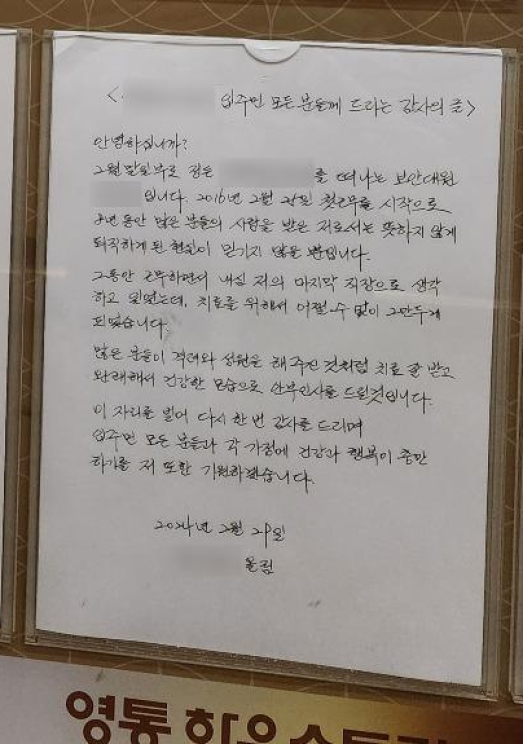 < 입주민 모든 분들께 드리는 감사의 글>
안녕하십니까?
2월 말일부로 정든 를 떠나는 보안대원
입니다. 2016년 2월 첫근무를 시작으로
8년 동안 많은 분들의 사랑을 받은 저로서는 뜻하지 않게
퇴직하게 된 현실이 믿기지 않을 뿐입니다.
그동안 근무하면서 내심 저의 마지막 직장으로 생각
하고 있었는데, 치료를 위해서 어쩔 수 없이 그만두게
되었습니다.
많은 분들이 격려와 성원을 해 주신 것처럼 치료 잘 받고
완쾌해서 건강한 모습으로 안부인사를 드릴것입니다.
이 자리를 빌어 다시 한 번 감사를 드리며
입주민 모든 분들과 각 가정에 건강과 행복이 충만
하기를 저 또한 기원하겠습니다.
2024년 2월 29일
올림
영통